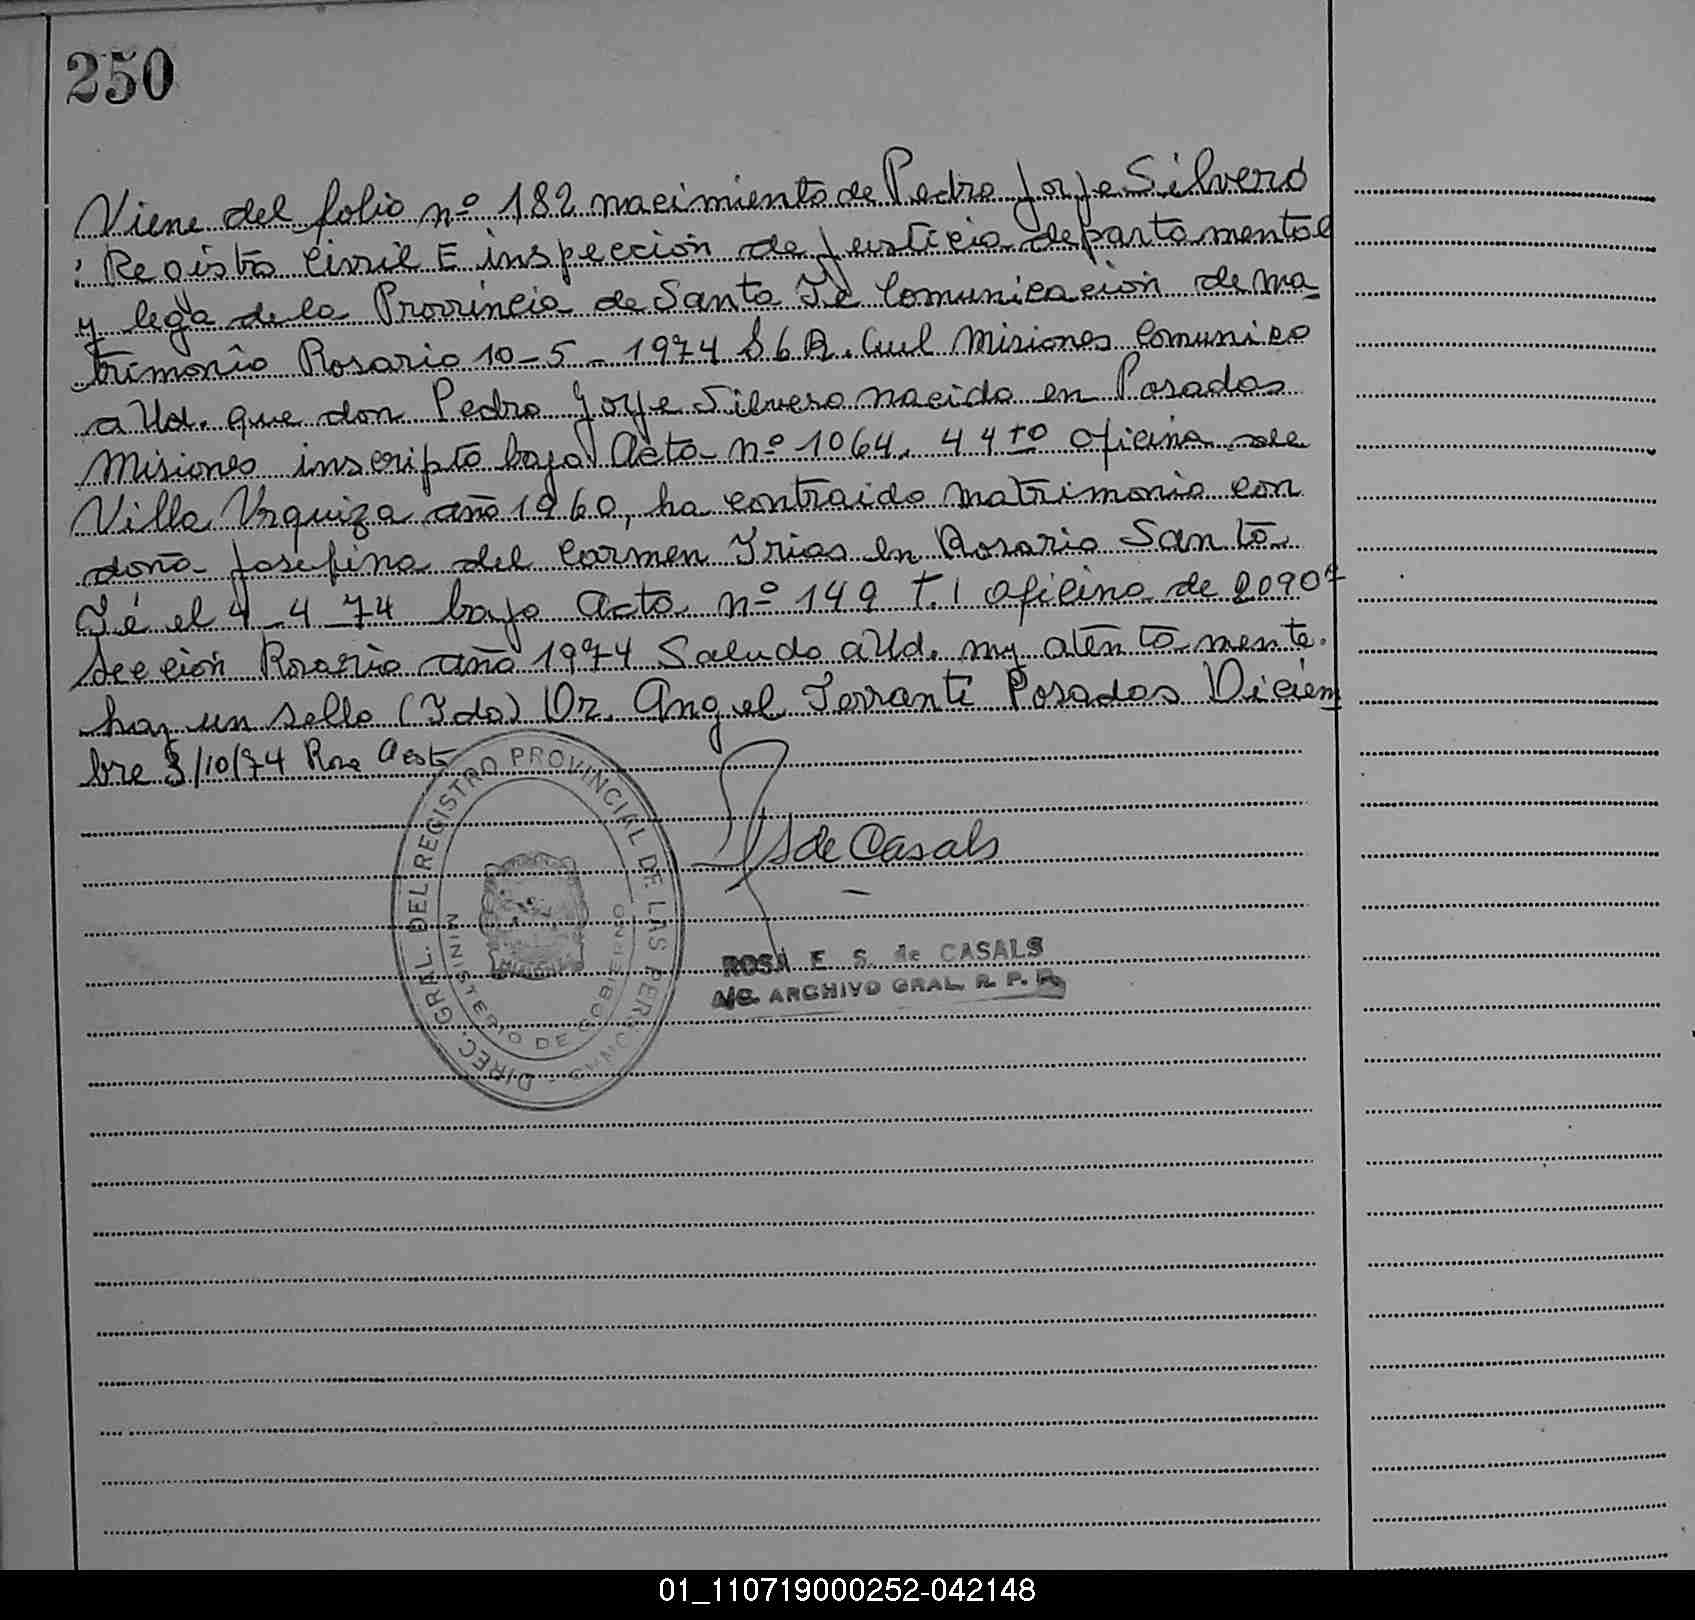 250
Viene del folio nº 182 nacimiento de Pedro Jorge Silvero
: Registro Civil E inspección de Justicia departamental
y lega de la Provincia de Santa Fé Comunicación de ma-
trimonio Rosario 10-5-1974 Misiones Comunico
a Ud. que don Pedro Jorge Silvero nacido en Posadas
Misiones inscripto bajo Acta nº 1064. oficina de
Villa Urquiza año 1960, ha contraido matrimonio con
doña Josefina del Carmen Frias en Rosario Santa
Fé el 4-4-74 bajo acta nº 149 T.1 oficina de
Sección Rosario año 1974 Saludo a Ud. my atentamente.
hay un sello (Fdo) Dr. Angel Posadas Diciem
bre 3/10/74
S de Casals
DIREC. GRAL. DEL REGISTRO PROVINCIAL DE LAS PERSONAS
MINISTERIO DE GOBIERNO
ROSA E. S. de CASALS
A/C. ARCHIVO GRAL. R. P. P.
01_110719000252-042148